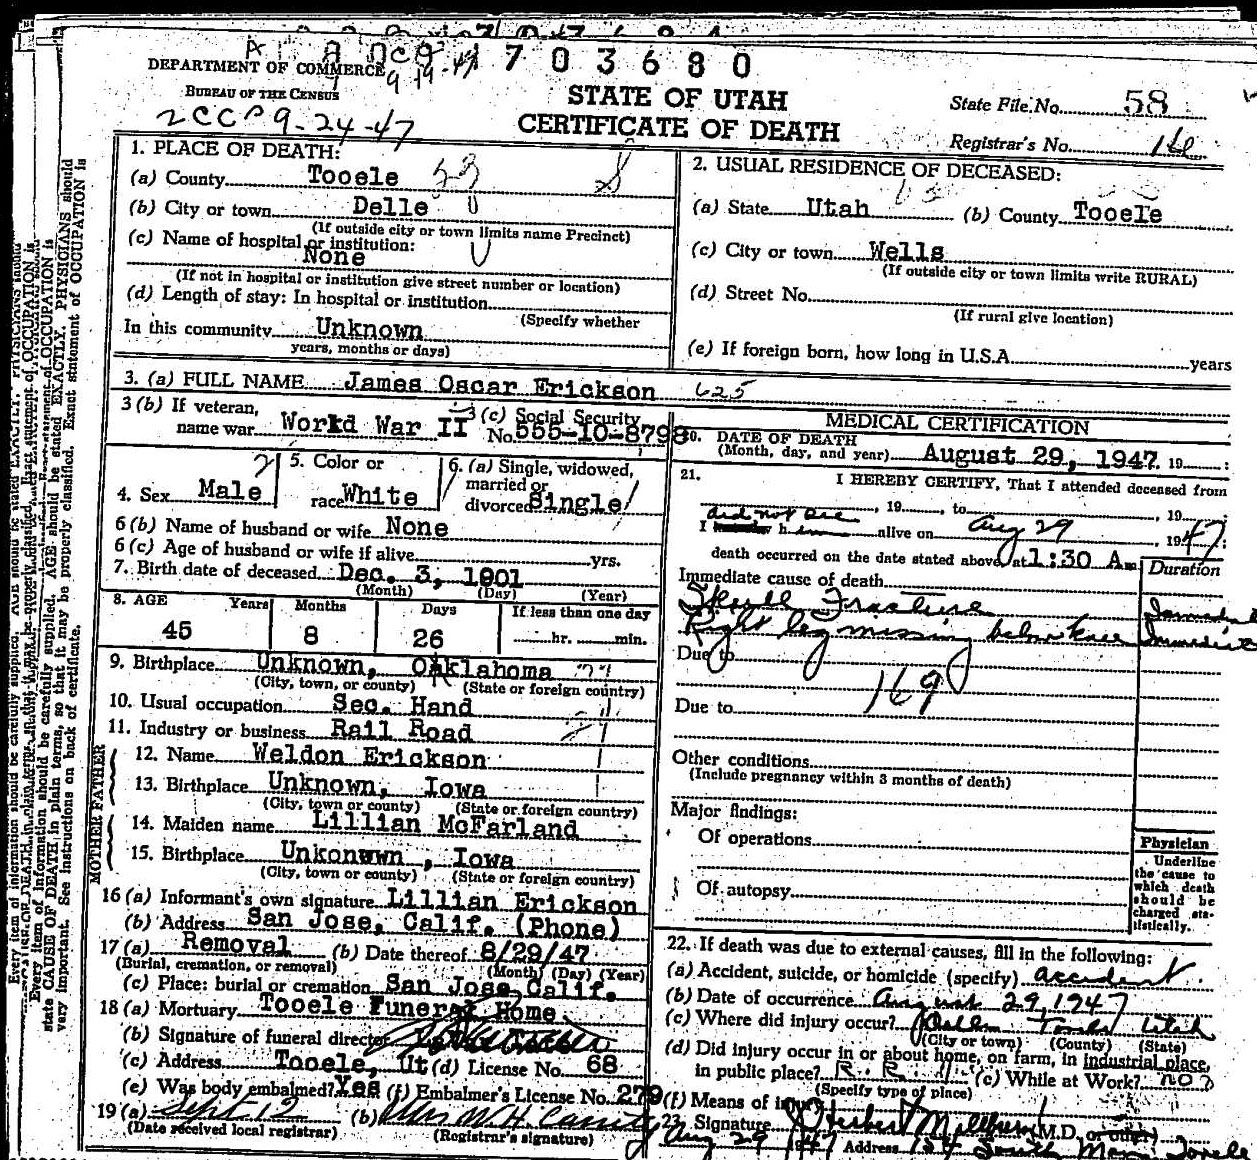 1703680
DEPARTMENT OF COMMERCE 9-19-47
BUREAU OF THE CENSUS
9-24-47
STATE OF UTAH
CERTIFICATE OF DEATH
State File No. 58
Registrar's No.
1. PLACE OF DEATH:
(a) County Tooele
(b) City or town Delle
(If outside city or town limits name Precinct)
(c) Name of hospital or institution:
None
(If not in hospital or institution give street number or location)
(d) Length of stay: In hospital or institution
(Specify whether
In this community Unknown
years, months or days)
2. USUAL RESIDENCE OF DECEASED:
(a) State Utah (b) County Tooele
(c) City or town Wells
(If outside city or town limits write RURAL)
(d) Street No.
(If rural give location)
(e) If foreign born, how long in U.S.A. years
3. (a) FULL NAME James Oscar Erickson 625
3 (b) If veteran, name war World War II
3 (c) Social Security No. 555-10-8798
4. Sex Male
5. Color or race White
6. (a) Single, widowed, married or divorced Single
6 (b) Name of husband or wife None
6 (c) Age of husband or wife if alive yrs.
7. Birth date of deceased Dec. 3, 1901
(Month) (Day) (Year)
8. AGE Years Months Days If less than one day
45 8 26 hr. min.
9. Birthplace Unknown, Oklahoma
(City, town, or county) (State or foreign country)
10. Usual occupation Sec. Hand
11. Industry or business Rail Road
FATHER
12. Name Weldon Erickson
13. Birthplace Unknown, Iowa
(City, town or county) (State or foreign country)
MOTHER
14. Maiden name Lillian McFarland
15. Birthplace Unkonwn, Iowa
(City, town or county) (State or foreign country)
16 (a) Informant's own signature Lillian Erickson
(b) Address San Jose, Calif. (Phone)
17 (a) Removal (b) Date thereof 8/29/47
(Burial, cremation, or removal) (Month) (Day) (Year)
(c) Place: burial or cremation San Jose Calif.
18 (a) Mortuary Tooele Funeral Home
(b) Signature of funeral director
(c) Address Tooele, Ut (d) License No. 68
(e) Was body embalmed? Yes (f) Embalmer's License No. 279
19 (a) Sept 12 (b) Mrs W. H.
(Date received local registrar) (Registrar's signature)
MEDICAL CERTIFICATION
20. DATE OF DEATH
(Month, day, and year) August 29, 1947. 19
21. I HEREBY CERTIFY, That I attended deceased from
, 19 , to , 19 ;
I did not see him alive on Aug 29, 1947;
death occurred on the date stated above, at 1:30 A m
Duration
Immediate cause of death
Skull Fracture
Right leg missing below knee
Due to
169
Due to
Other conditions
(Include pregnancy within 3 months of death)
Major findings:
Of operations
Of autopsy
Physician
Underline the cause to which death should be charged statistically.
22. If death was due to external causes, fill in the following:
(a) Accident, suicide, or homicide (specify) accident
(b) Date of occurrence August 29, 1947
(c) Where did injury occur? Tooele Utah
(City or town) (County) (State)
(d) Did injury occur in or about home, on farm, in industrial place,
in public place? R.R. (e) While at Work? no
(Specify type of place)
(f) Means of
Signature Herbert Milburn (M.D. or other)
Aug 29 1947 Address 154 South Main Tooele
Every item of information should be carefully supplied. AGE should be stated EXACTLY. PHYSICIANS should
state CAUSE OF DEATH in plain terms, so that it may be properly classified. Exact statement of OCCUPATION is
very important. See instructions on back of certificate.